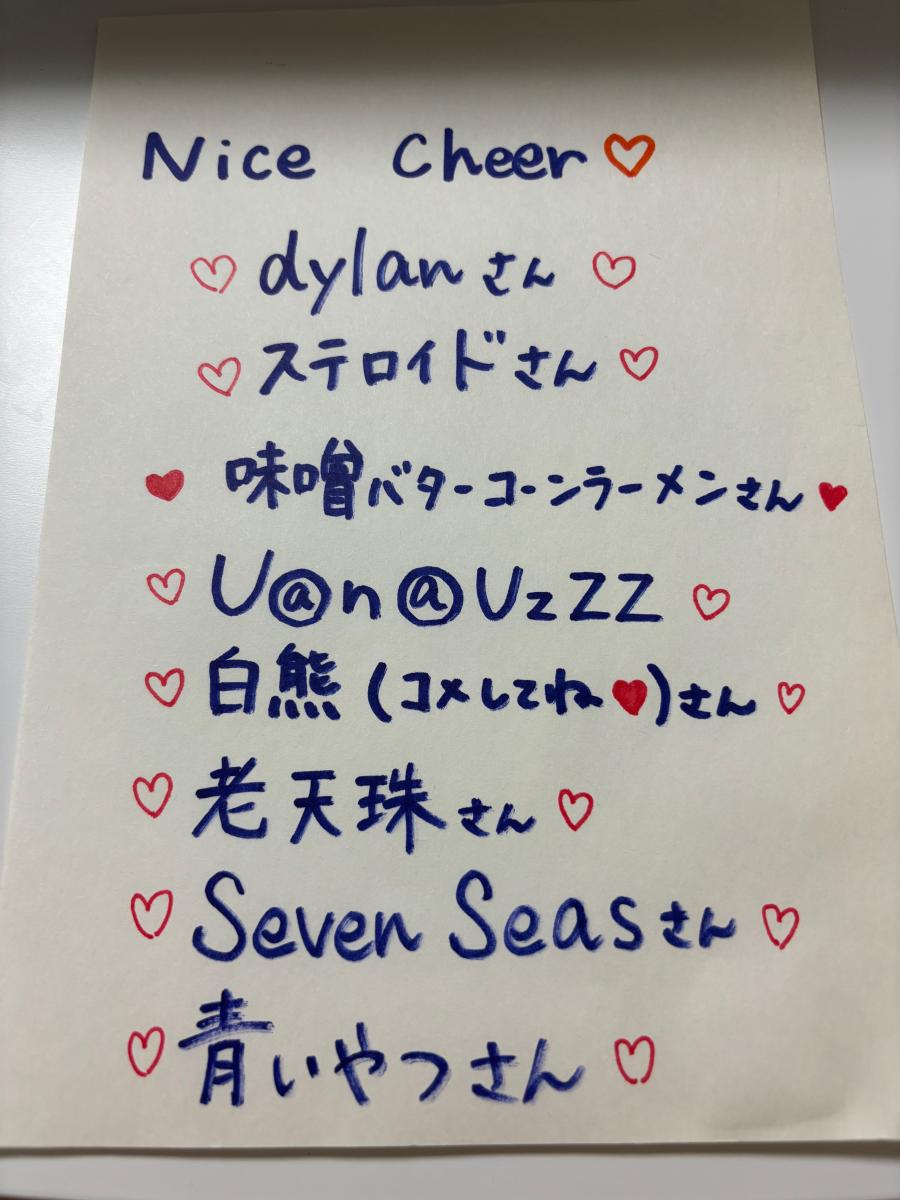 Nice Cheer♡
♡ dylanさん ♡
♡ ステロイドさん ♡
♥ 味噌バターコーンラーメンさん ♥
♡ U@n@UzZZ ♡
♡ 白熊(コメしてね♥)さん ♡
♡ 老天珠さん ♡
♡ Seven Seasさん ♡
♡ 青いやつさん ♡